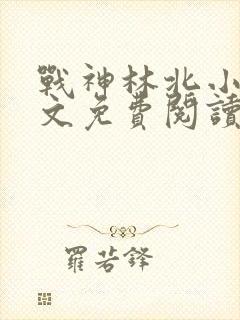 戰神林北小
文免費閱讀
羅若鋒